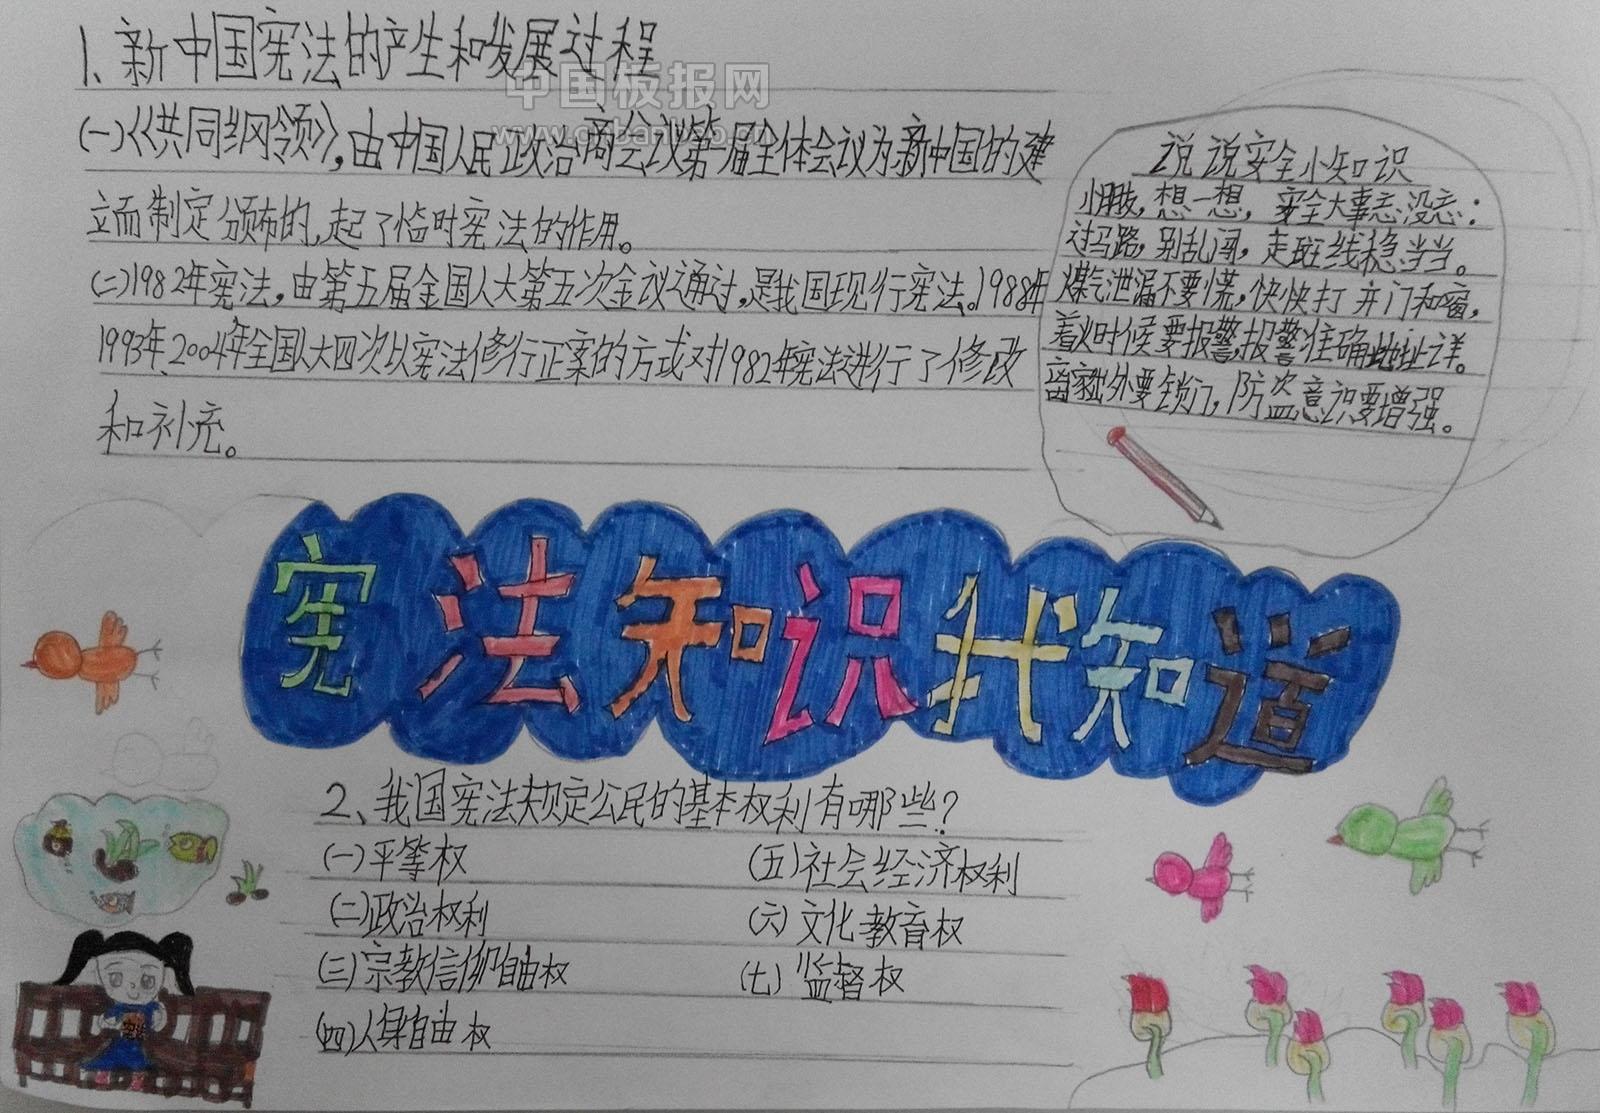 1、新中国宪法的产生和发展过程
中国板报网
www.cnbanbao.cn
(一)《共同纲领》,由中国人民政治商会议第一届全体会议为新中国的建
立而制定颁布的,起了临时宪法的作用。
(二)1982年宪法,由第五届全国人大第五次会议通过,是我国现行宪法。1988年
1993年、2004年全国人大四次以宪法修行正案的方式对1982年宪法进行了修改
和补充。
说说安全小知识
小朋友,想一想,安全大事忘没忘:
过马路,别乱闯,走斑线稳当当。
煤气泄漏不要慌,快快打开门和窗,
着火时候要报警,报警准确地址详。
离家出外要锁门,防盗意识要增强。
宪法知识我知道
2、我国宪法规定公民的基本权利有哪些?
(一)平等权
(五)社会经济权利
(二)政治权利
(六)文化教育权
(三)宗教信仰自由权
(七)监督权
(四)人身自由权
宪法